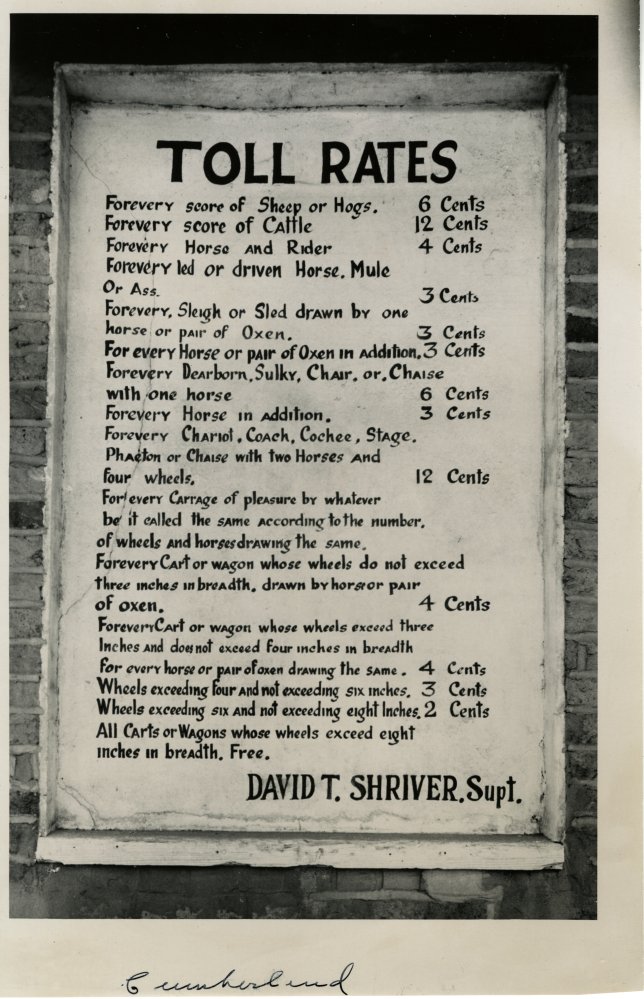 TOLL RATES
Forevery score of Sheep or Hogs. 6 Cents
Forevery score of Cattle 12 Cents
Forevery Horse and Rider 4 Cents
Forevery led or driven Horse. Mule
Or Ass. 3 Cents
Forevery, Sleigh or Sled drawn by one
horse or pair of Oxen. 3 Cents
For every Horse or pair of Oxen in Addition. 3 Cents
Forevery Dearborn, Sulky, Chair, or, Chaise
with one horse 6 Cents
Forevery Horse in addition. 3 Cents
Forevery Chariot, Coach, Cochee, Stage.
Phaeton or Chaise with two Horses and
four wheels. 12 Cents
For every Carrage of pleasure by whatever
be it called the same according to the number.
of wheels and horses drawing the same.
Forevery Cart or wagon whose wheels do not exceed
three inches in breadth, drawn by horse or pair
of oxen. 4 Cents
Forevery Cart or wagon whose wheels exceed three
Inches and does not exceed four inches in breadth
for every horse or pair of oxen drawing the same. 4 Cents
Wheels exceeding four and not exceeding six inches. 3 Cents
Wheels exceeding six and not exceeding eight Inches. 2 Cents
All Carts or Wagons whose wheels exceed eight
inches in breadth. Free.
DAVID T. SHRIVER. Supt.
Cumberland